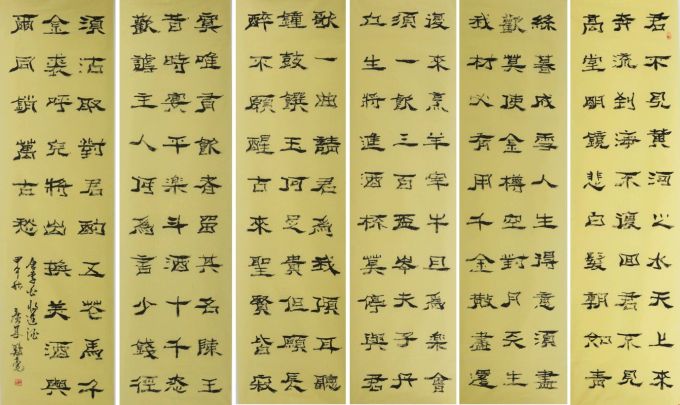 君不見黃河之水天上來
奔流到海不復回君不見
高堂明鏡悲白髮朝如青
絲暮成雪人生得意須盡
歡莫使金樽空對月天生
我材必有用千金散盡還
復來烹羊宰牛且為樂會
須一飲三百盃岑夫子丹
丘生將進酒杯莫停與君
歌一曲請君為我傾耳聽
鐘鼓饌玉何足貴但願長
醉不願醒古來聖賢皆寂
寞唯有飲者留其名陳王
昔時宴平樂斗酒十千恣
歡謔主人何為言少錢徑
須沽取對君酌五花馬千
金裘呼兒將出換美酒與
爾同銷萬古愁
唐李白將進酒
甲午秋